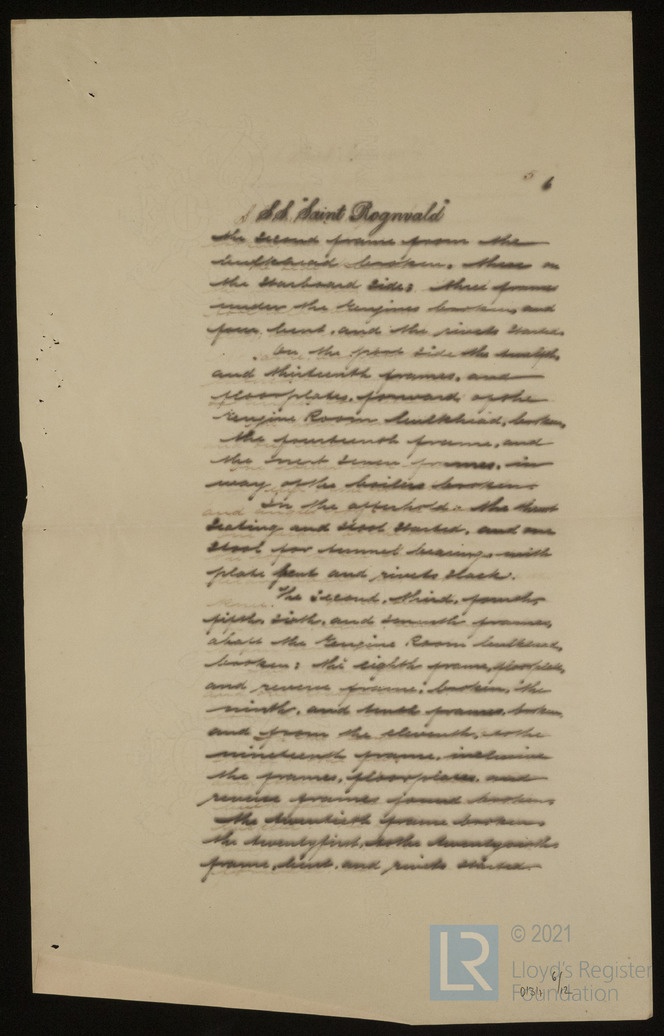 5 6
S.S. "Saint Rognvald"
the second frame from the
bulkhead broken, these on
the Starboard side; three frames
under the Engines broken, and
four bent, and the rivets started.
On the port side the twelfth,
and thirteenth frames, and
floorplates, forward of the
Engine Room bulkhead, broken,
the fourteenth frame, and
the next seven frames, in
way of the boilers broken.
In the afterhold:- the thrust
Seating and Stool started, and one
Stool for tunnel bearing, with
plate bent and rivets slack.
The second, third, fourth,
fifth, sixth, and seventh frames,
abaft the Engine Room bulkhead,
broken; the eighth frame, floorplate,
and reverse frame; broken, the
ninth, and tenth frames, broken,
and from the eleventh, to the
nineteenth frame, inclusive
the frames, floorplates, and
reverse frames found broken.
The twentieth frame broken.
the twentyfirst, to the twentysixth
frame, bent, and rivets started.
LR © 2021
Lloyd's Register
Foundation